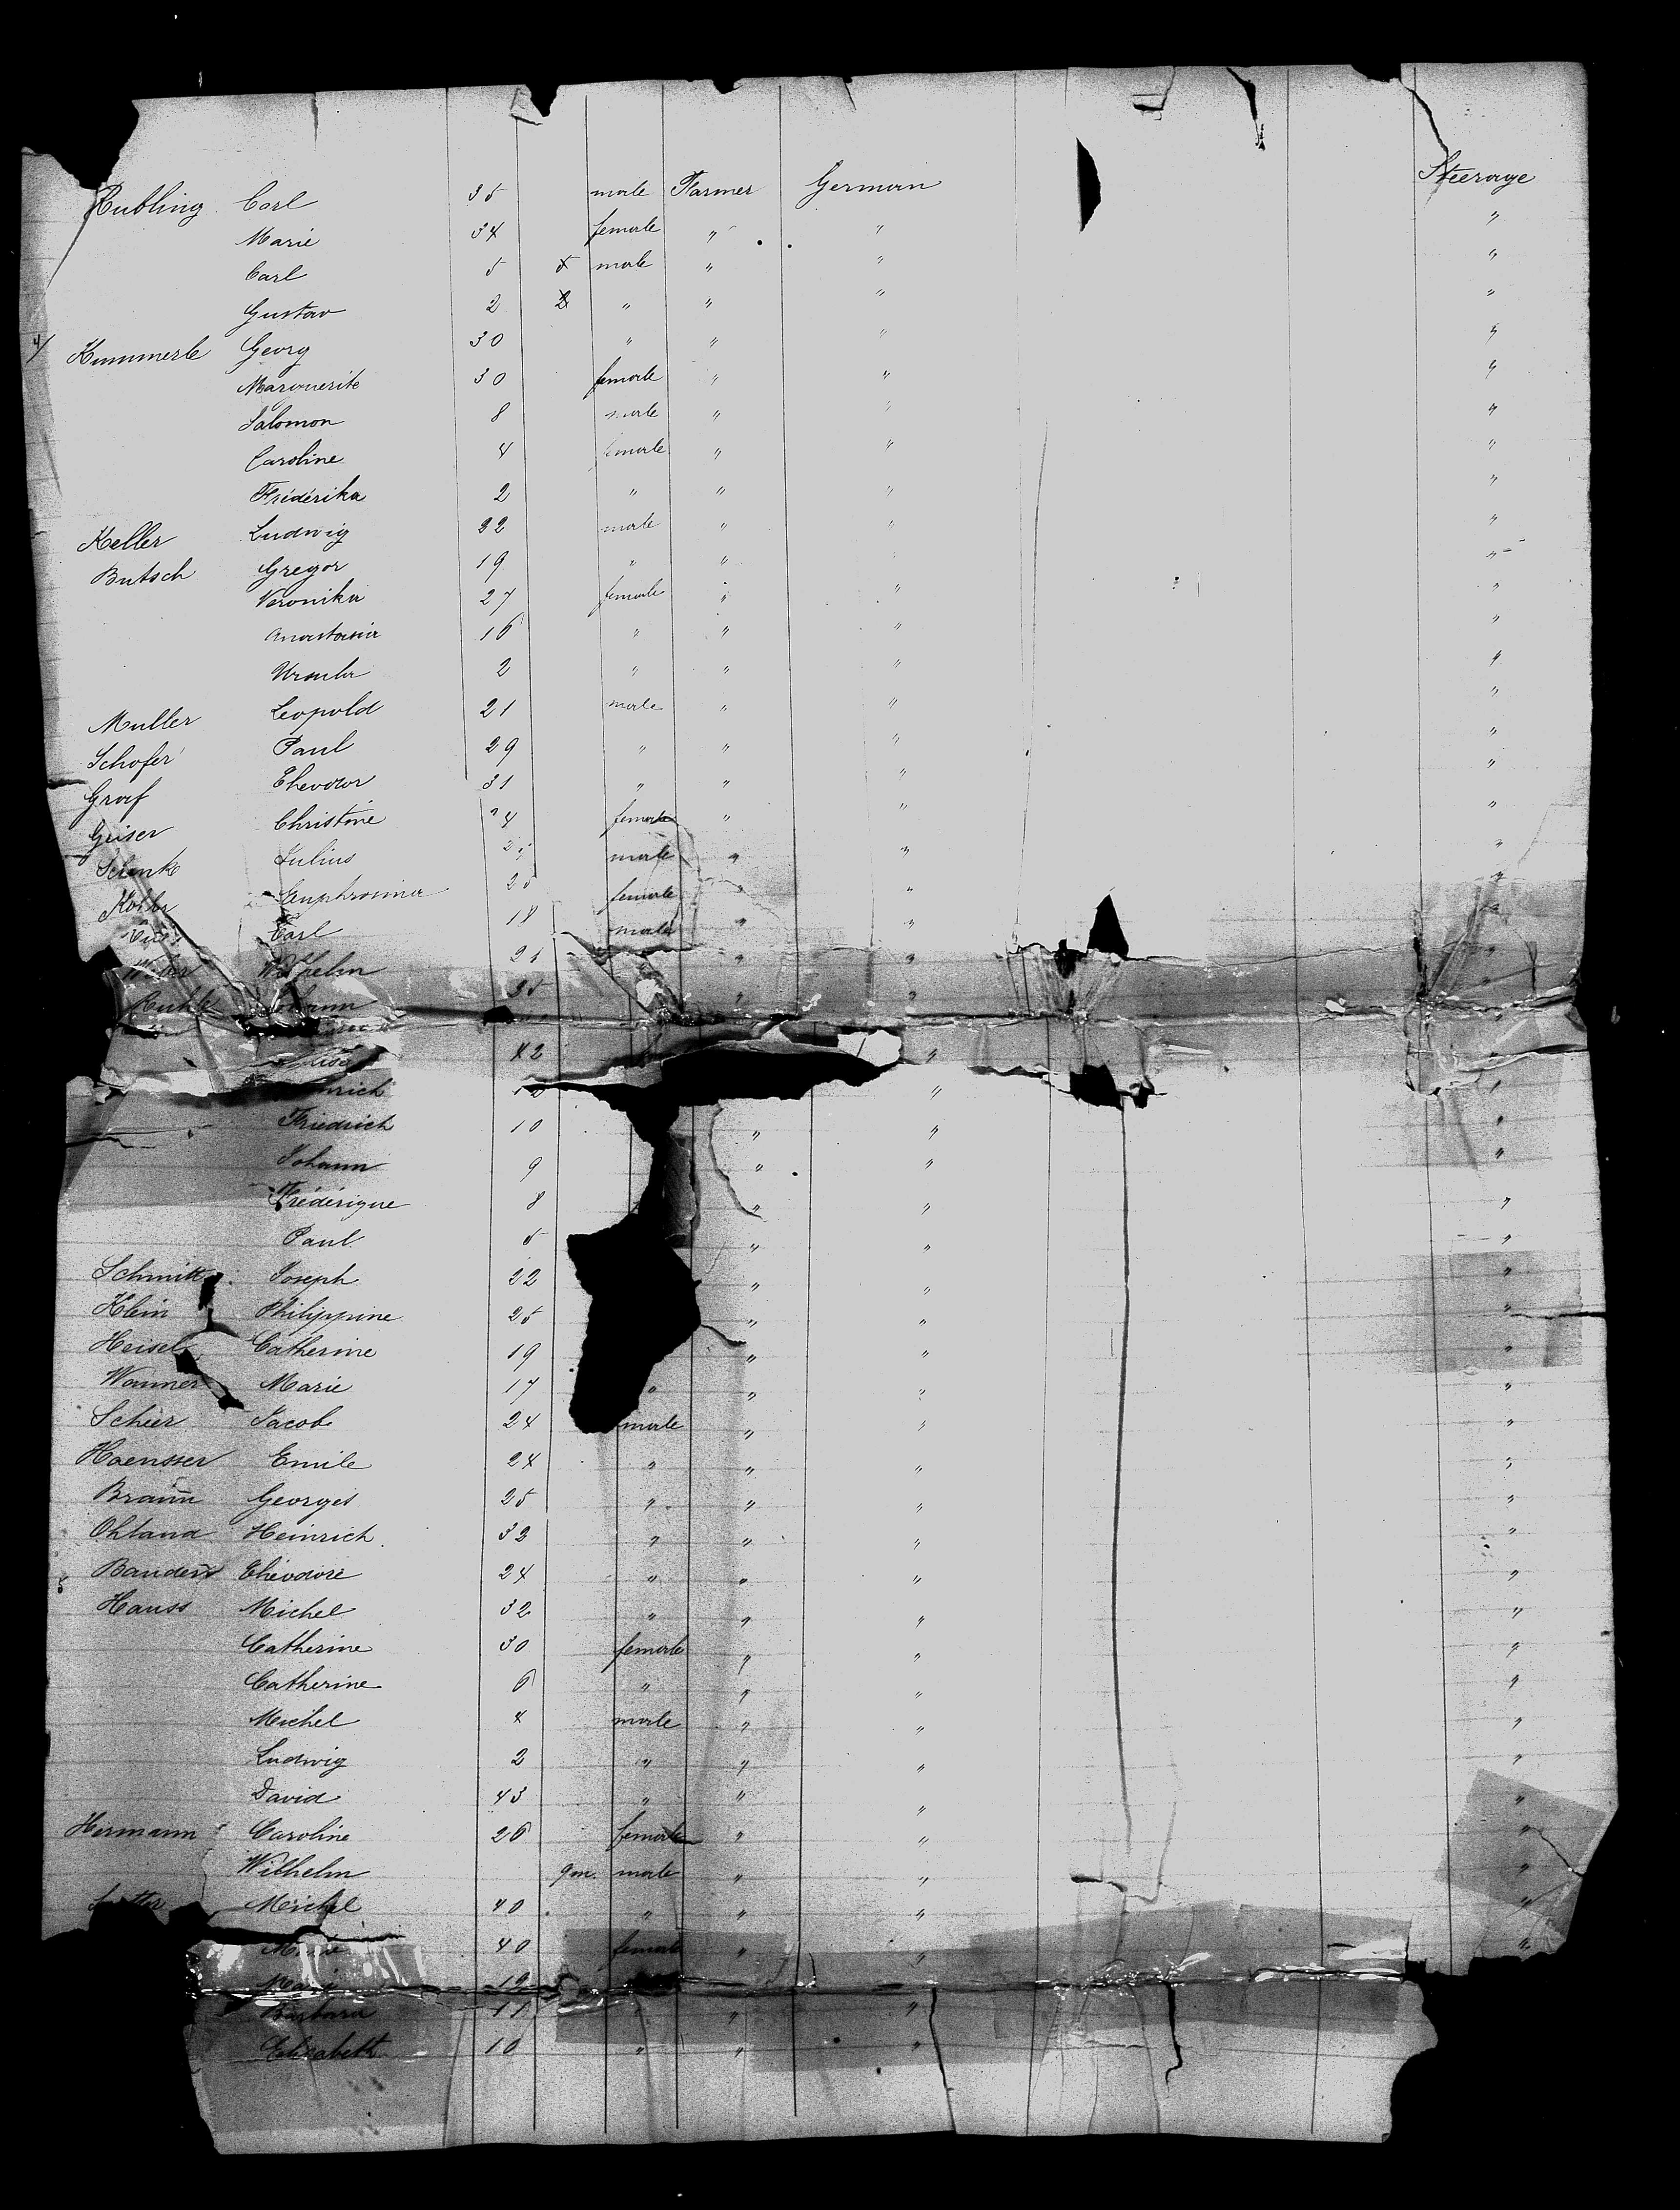 Rubling Carl 35 male Farmer German Steerage
Marie 34 female " " "
Carl 5 5 male " " "
Gustav 2 2 " " " "
4/ Kummerle Georg 30 " " " "
Marguerite 30 female " " "
Salomon 8 male " " "
Caroline 4 female " " "
Frédérika 2 " " " "
Keller Ludwig 22 male " " "
Butsch Gregor 19 " " " "
Veronika 27 female " " "
Anastasia 16 " " " "
Ursula 2 " " " "
Muller Leopold 21 male " " "
Schofer Paul 29 " " " "
Graf Theodor 31 " " " "
Geiser Christine 24 female " " "
Schenk Julius male " " "
Euphrosina 25 female " " "
Carl 18 male " " "
Weber Wilhelm 21 " " "
Johann 35 " " "
42 "
10 " "
Friedrich 10 " " "
Johann 9 " " "
Frédérique 8 " " "
Paul 5 " " "
Schmitt Joseph 22 " " "
Klein Philippine 25 " " "
Heisel Catherine 19 " " "
Wanner Marie 17 " " " "
Scheer Jacob 24 male " " "
Haensser Emile 24 " " " "
Braun Georges 25 " " " "
Ohland Heinrich 32 " " " "
Théodore 24 " " " "
Hauss Michel 32 " " " "
Catherine 30 female " " "
Catherine 6 " " " "
Michel 4 male " " "
Ludwig 2 " " " "
David 43 " " " "
Hermann Caroline 26 female " " "
Wilhelm 9m. male " " "
Michel 40 " " " "
40 female " " "
Marie 12
Barbara 11 " " "
Elisabeth 10 " " "